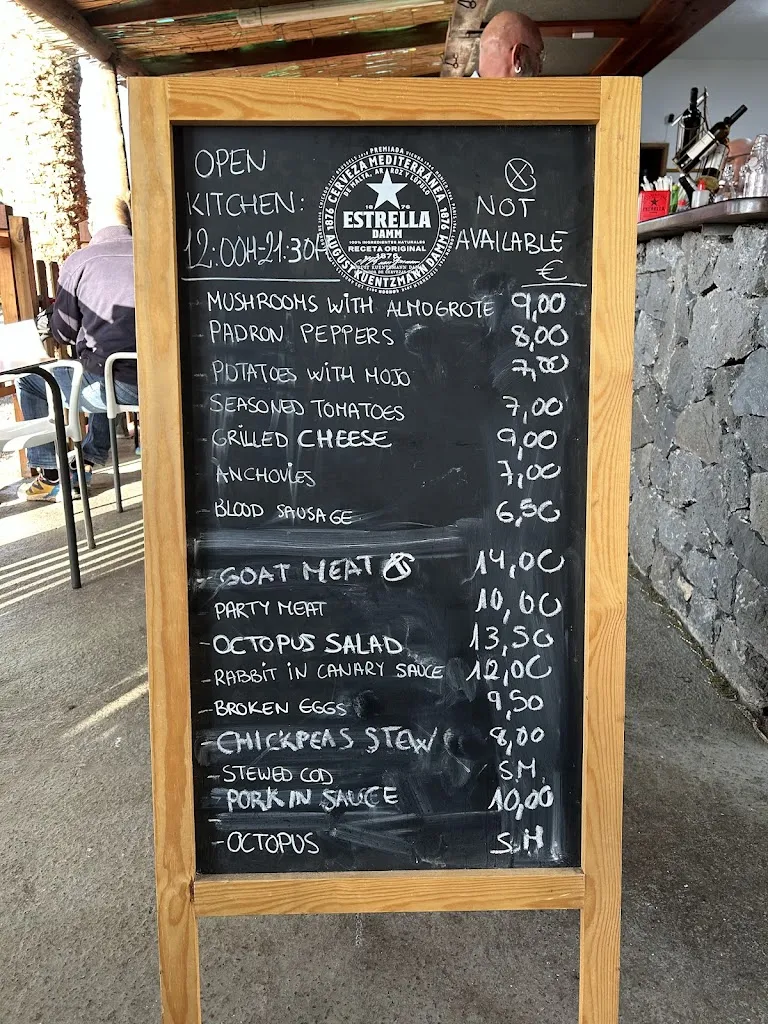 OPEN
KITCHEN:
12:00H-21:30H
PREMIADA
CERVEZA MEDITERRÁNEA
DE MALTA, ARROZ Y LÚPULO
1876
1876
1876
ESTRELLA
DAMM
100% INGREDIENTES NATURALES
RECETA ORIGINAL
1876
AUGUST KUENTZMANN DAMM
NOT
AVAILABLE
€
MUSHROOMS WITH ALMOGROTE 9,00
PADRON PEPPERS 8,00
POTATOES WITH MOJO 7,00
SEASONED TOMATOES 7,00
GRILLED CHEESE 9,00
ANCHOVIES 7,00
- BLOOD SAUSAGE 6,50
- GOAT MEAT 14,00
PARTY MEAT 10,00
- OCTOPUS SALAD 13,50
- RABBIT IN CANARY SAUCE 12,00
- BROKEN EGGS 9,50
- CHICKPEAS STEW 8,00
- STEWED COD S.M.
- PORK IN SAUCE 10,00
- OCTOPUS S.M